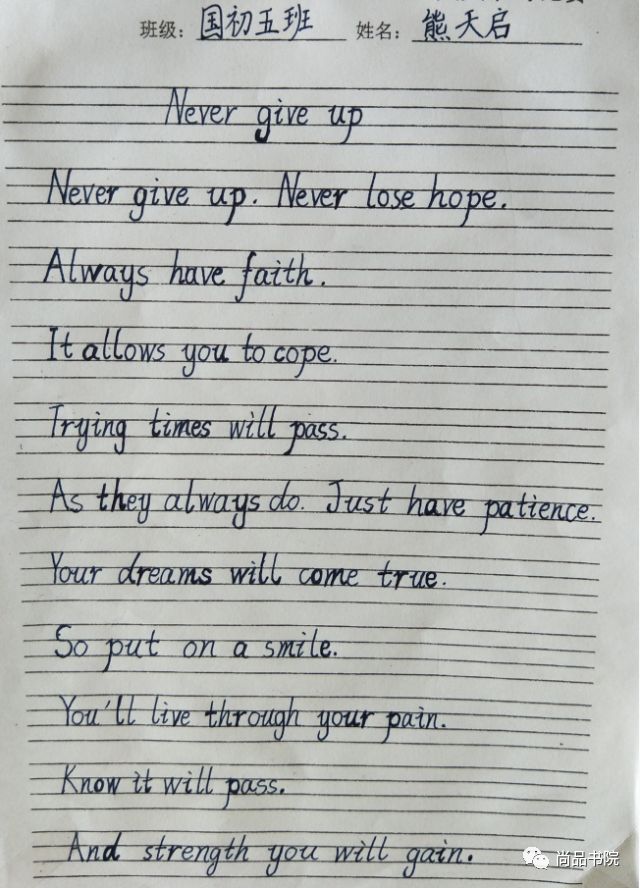 班级: 国初五班 姓名: 熊天启
Never give up
Never give up. Never lose hope.
Always have faith.
It allows you to cope.
Trying times will pass.
As they always do. Just have patience.
Your dreams will come true.
So put on a smile.
You'll live through your pain.
Know it will pass.
And strength you will gain.
尚品书院